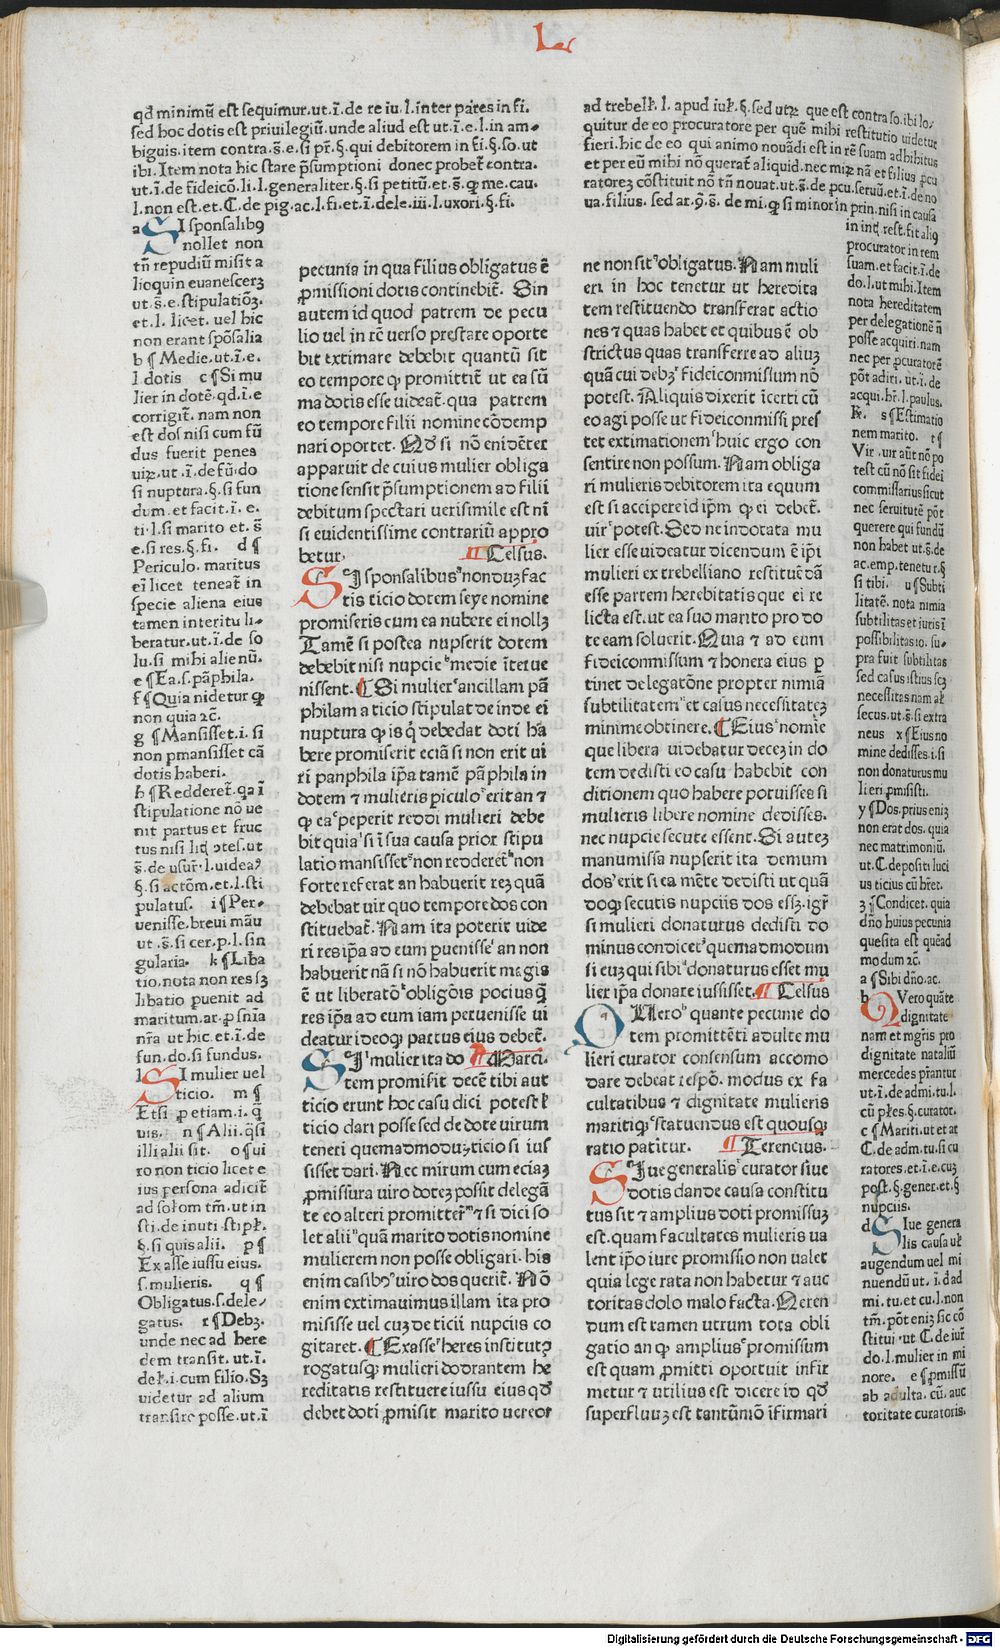 L
qđ minimū est sequimur.ut.ī.de re iu.l.inter pares in fi.
sed hoc dotis est priuilegiū.unde aliud est ut.ī.e.l.in am-
biguis.item contra.s̄.e.si pr̄.§.qui debitorem in fi.§.so.ut
ibi.Item nota hic stare p̄sumptioni donec probet̄ contra.
ut.ī.de fideicō.li.l.generaliter.§.si petitū.et.s̄.ꝙ me.cau.
l.non est.et.C.de pig.ac.l.fi.et.ī.dele.iii.l.uxori.§.fi.
a SI sponsalibꝰ
nollet non
tn̄ repudiū misit a
lioquin euanescerꝫ
ut.s̄.e.stipulatiōꝫ.
et.l.licet.uel hic
non erant spōsalia
b ¶ Medie.ut.ī.e.
l.dotis c ¶ Si mu
lier in dotē.qđ.ī.e
corrigit̄.nam non
est dos nisi cum fū
dus fuerit penes
uiꝝ.ut.ī.de fū.do
si nuptura.§.si fun
dum.et facit.ī.e.
ti.l.si marito et.s̄
e.si res.§.fi. d ¶
Periculo.maritus
ei licet teneat̄ in
specie aliena eius
tamen interitu li-
beratur.ut.ī.de so
lu.si mihi alienū.
e ¶ Ea.s.pāphila.
f ¶ Quia uidetur ꝙ
non quia ⁊c̄.
g ¶ Mansisset.i.si
non pmansisset cā
dotis haberi.
h ¶ Redderet̄.qa ī
stipulatione nō ue
nit partus et fruc
tus nisi lit̄ ꝯtes.ut
s̄.de usur̄.l.uideaꝰ
§.si actōm.et.l.sti
pulatus. i ¶ Per-
uenisse.breui māu
ut.s̄.si cer.p.l.sin
gularia. k ¶ Liba
tio.nota non res sꝫ
libatio puenit ad
maritum.ar.ꝓ sn̄ia
nr̄a ut hic.et.ī.de
fun.do.si fundus.
l SI mulier uel
ticio. m ¶
Etsi ꝓ etiam.i.q̄
uis. n ¶ Alii.q̄si
illi alii sit. o ¶ ui
ro non ticio licet e
ius persona adiciī
ad solom tm̄.ut in
sti.de inuti.stipl̄.
§.si quis alii. p ¶
Ex asse iussu eius.
s.mulieris. q ¶
Obligatus.s.dele-
gatus. r ¶ Debꝫ.
unde nec ad here
dem transit.ut.ī.
del̄.i.cum filio.Sꝫ
uidetur ad alium
transire posse.ut.ī
pecunia in qua filius obligatus ē
ꝓmissioni dotis continebit̄. Sin
autem id quod patrem de pecu
lio uel in rē verso prestare oporte
bit extimare debebit quantū sit
eo tempore ꝙ promittit̄ ut ea sū
ma dotis esse uideat̄.qua patrem
eo tempore filii nomine cōdemp
nari oportet. Qd̄ si nō euidēter
apparuit de cuius mulier obliga
tione sensit p̄sumptionem ad filii
debitum spectari uerisimile est nī
si euidentissime contrariū appro
betur. ¶ Celsus.
SI sponsalibus nonduꝫ fac
tis ticio dotem seye nomine
promiseris cum ea nubere ei nollꝫ
Tamē si postea nupserit dotem
debebit nisi nupcie medie iterue
nissent. ¶ Si mulier ancillam pā
philam a ticio stipulat̄ deinde ei
nuptura ꝙ is q̄ debedat doti ha
bere promiserit eciā si non erit ui
ri panphila ip̄a tamē pāphila in
dotem ⁊ mulieris piculo erit an ⁊
ꝙ ea peperit reddi mulieri debe
bit quia si ī sua causa prior stipu
latio mansisset non redderet̄ non
forte referat an habuerit reꝫ quā
debebat uir quo tempore dos con
stituebat̄. Nam ita poterit uide
ri res ip̄a ad eum puenisse an non
habuerit nā si nō habuerit magis
ē ut liberatō obligōis pocius q̄
res ip̄a ad eum iam peruenisse ui
deatur ideoqꝫ partus eius debet̄.
SI mulier ita do ¶ Marci.
tem promisit decē tibi aut
ticio erunt hoc casu dici potest l̄
ticio dari posse sed de dote uirum
teneri quemadmoduꝫ ticio si ius
sisset dari. Nec mirum cum eciaꝫ
ꝓmissura uiro doteꝫ possit delegā
te eo alteri promitter̄ ⁊ si dici so
let alii quā marito dotis nomine
mulierem non posse obligari.his
enim casibꝰ uiro dos querit̄. Nō
enim extimauimus illam ita pro
misisse uel cuꝫ de ticii nupciis co
gitaret. ¶ Ex asse heres institutꝰ
rogatusqꝫ mulieri dodrantem he
reditatis restituere iussu eius qđ
debet doti ꝓmisit marito uereor
ad trebell̄.l.apud iul̄.§.sed utꝝ que est contra so.ibi lo-
quitur de eo procuratore per quē mihi restitutio uidetur
fieri.hic de eo qui animo nouādi est in rē suam adhibitus
et per eū mihi nō querat̄ aliquid.nec miꝝ nā et filius pcu
ratoreꝫ cōstituit nō tn̄ nouat.ut.s̄.de pcu.seruū.et.ī.de no
ua.filius. sed ar.ꝯ.s̄.de mi.ꝙ si minor in prin.nisi in causa
ne non sit obligatus. Nam muli
eri in hoc tenetur ut heredita
tem restituendo transferat actio
nes ⁊ quas habet et quibus ē ob
strictus quas transferre ad aliuꝫ
quā cui debꝫ fideiconmissum nō
potest. Aliquis dixerit icerti cū
eo agi posse ut fideiconmissi pres
tet extimationem huic ergo con
sentire non possum. Nam obliga
ri mulieris debitorem ita equum
est si accipere id ip̄m ꝙ ei debet̄.
uir potest. Sed ne indotata mu
lier esse uideatur dicendum ē ip̄i
mulieri ex trebelliano restituēdā
esse partem herebitatis que ei re
licta est.ut ea suo marito pro do
te eam soluerit. Quia ⁊ ad eum
fideiconmissum ⁊ honera eius p
tinet delegatōne propter nimiā
subtilitatem et casus necessitateꝫ
minime obtinere. ¶ Eius nomīe
que libera uidebatur deceꝫ in do
tem dedisti eo casu habebit con
ditionem quo habere potuisses si
mulieris libere nomine dedisses.
nec nupcie secute essent. Si auteꝫ
manumissa nupserit ita demum
dos erit si ea mēte dedisti ut quā
doqꝫ secutis nupciis dos essꝫ.igr̄
si mulieri donaturus dedisti do
minus condicet quemadmodum
si euꝫ qui sibi donaturus esset mu
lier ip̄a donare iussisset. ¶ Celsus
QUero quante pecunie do
tem promittēti adulte mu
lieri curator consensum accomo
dare debeat respō. modus ex fa
cultatibus ⁊ dignitate mulieris
maritiqꝫ statuendus est quousqꝫ
ratio patitur. ¶ Terencius.
SIue generalis curator siue
dotis dande causa constitu
tus sit ⁊ amplius doti promissuꝫ
est.quam facultates mulieris ua
lent ip̄o iure promissio non ualet
quia lege rata non habetur ⁊ auc
toritas dolo malo facta. Queren
dum est tamen utrum tota obli
gatio an qꝫ amplius promissum
est quam ꝓmitti oportuit infir
metur ⁊ utilius est dicere id qđ
superfluuꝫ est tantūmō ifirmari
in int̄.rest.fit aliꝗ
procurator in rem
suam.et facit.ī.de
do.l.ut mihi.Item
nota hereditatem
per delegationē n̄
posse acquiri.nam
nec per ꝓcuratorē
pōt adiri.ut.ī.de
acqui.hr̄.l.paulus.
s ¶ Estimatio
nem marito. t ¶
Vir.uir aūt nō po
test cū nō sit fidei
commissarius sicut
nec seruitutē pōt
querere qui fundū
non habet ut.s̄.de
ac.emp.tenetur.§
si tibi. u ¶ Subti
litatē.nota nimia
subtilitas et iuris ī
possibilitas io.su-
pra fuit subtilitas
sed casus istius seꝫ
necessitas nam al̄
secus.ut.s̄.si extra
neus x ¶ Eius no
mine dedisses.i.si
non donaturus mu
lieri ꝓmisisti.
y ¶ Dos.prius eniꝫ
non erat dos.quia
nec matrimoniū.
ut.C.depositi luci
us ticius cū hr̄et.
z ¶ Condicet.quia
dn̄o huius pecunia
quesita est quēad
modum ⁊c̄.
a ¶ Sibi dn̄o.ac.
b QVero quāte
dignitate
nam et mgr̄is pro
dignitate nataliū
mercedes p̄rantur
ut.ī.de admi.tu.l.
cū pl̄es.§.curator.
c ¶ Mariti.ut et at
C.de adm.tu.si cu
ratores.et.ī.e.cuꝫ
post.§.gener.et.§
nupciis.
d SIue genera
lis causa ul̄
augendum uel mi
nuendū ut.ī.d ad
mi.tu.et cu.l.non
tm̄.pōt eniꝫ sic cō
stitui.ut.C.de iur̄
do.l.mulier in mi
nore. e ¶ ꝓmissū
ab adulta.cū.auc
toritate curatoris.
Digitalisierung gefördert durch die Deutsche Forschungsgemeinschaft - DFG